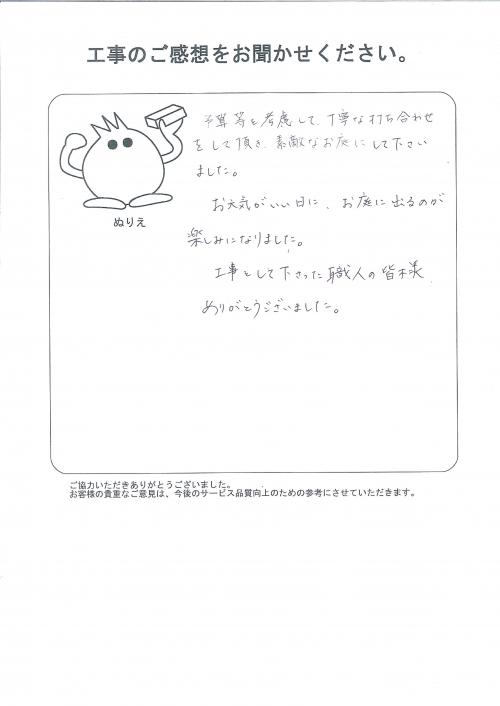 工事のご感想をお聞かせください。
予算等を考慮して、丁寧な打ち合わせ
をして頂き、素敵なお庭にして下さい
ました。
お天気がいい日に、お庭に出るのが
楽しみになりました。
工事をして下さった職人の皆様
ありがとうございました。
ぬりえ
ご協力いただきありがとうございました。
お客様の貴重なご意見は、今後のサービス品質向上のための参考にさせていただきます。